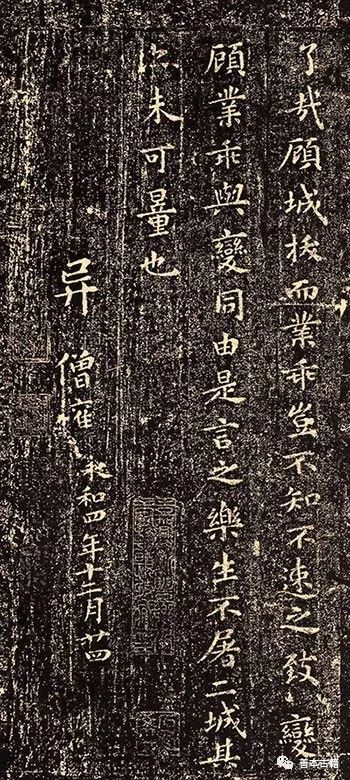 了哉顧城拔而業乖豈不知不速之致變
顧業乖與變同由是言之樂生不屠二城其
亦未可量也
异 僧權
永和四年十二月廿四
善本古籍